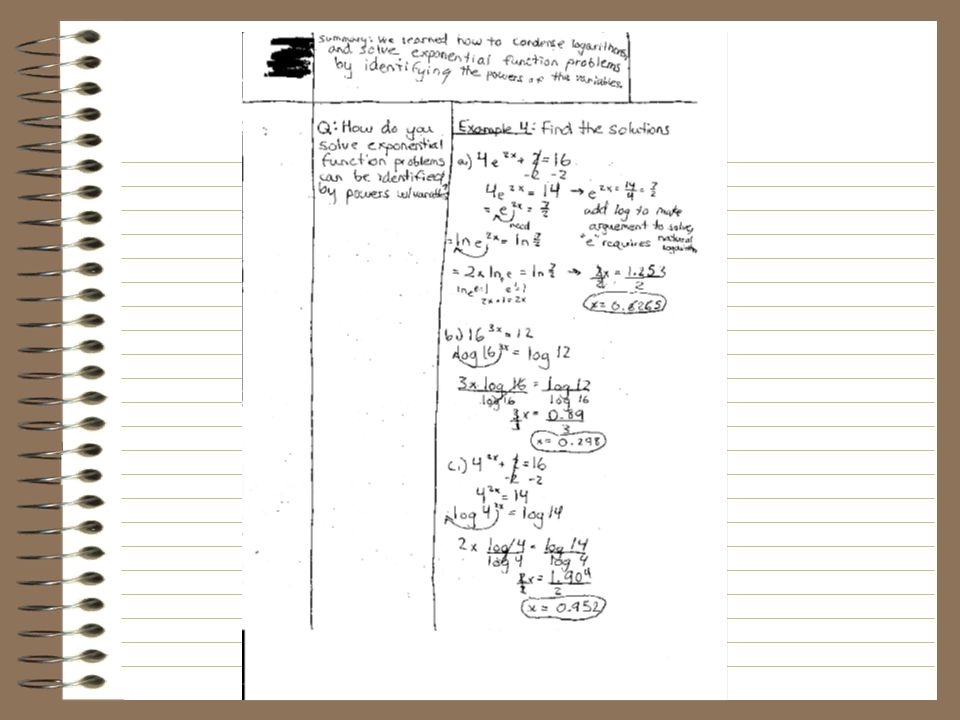 Summary: We learned how to condense logarithms,
and solve exponential function problems
by identifying the powers of the variables.
Q: How do you
solve exponential
function problems
can be identified
by powers w/variables?
Example 4: Find the solutions
a.) 4e^2x + 2 = 16
-2 -2
4e^2x = 14 → e^2x = 14/4 = 7/2
= e^2x = 7/2
need
add log to make
arguement to solve,
"e" requires natural logarithm
= ln e^2x = ln 7/2
= 2x ln e = ln 7/2 → 2x/2 = 1.253/2
ln e = 1
2x • 1 = 2x
x = 0.6265
b.) 16^3x = 12
log 16^3x = log 12
3x log 16 / log 16 = log 12 / log 16
3/3 x = 0.89/3
x = 0.298
c.) 4^2x + 2 = 16
-2 -2
4^2x = 14
log 4^2x = log 14
2x log 4 / log 4 = log 14 / log 4
2/2 x = 1.904/2
x = 0.952